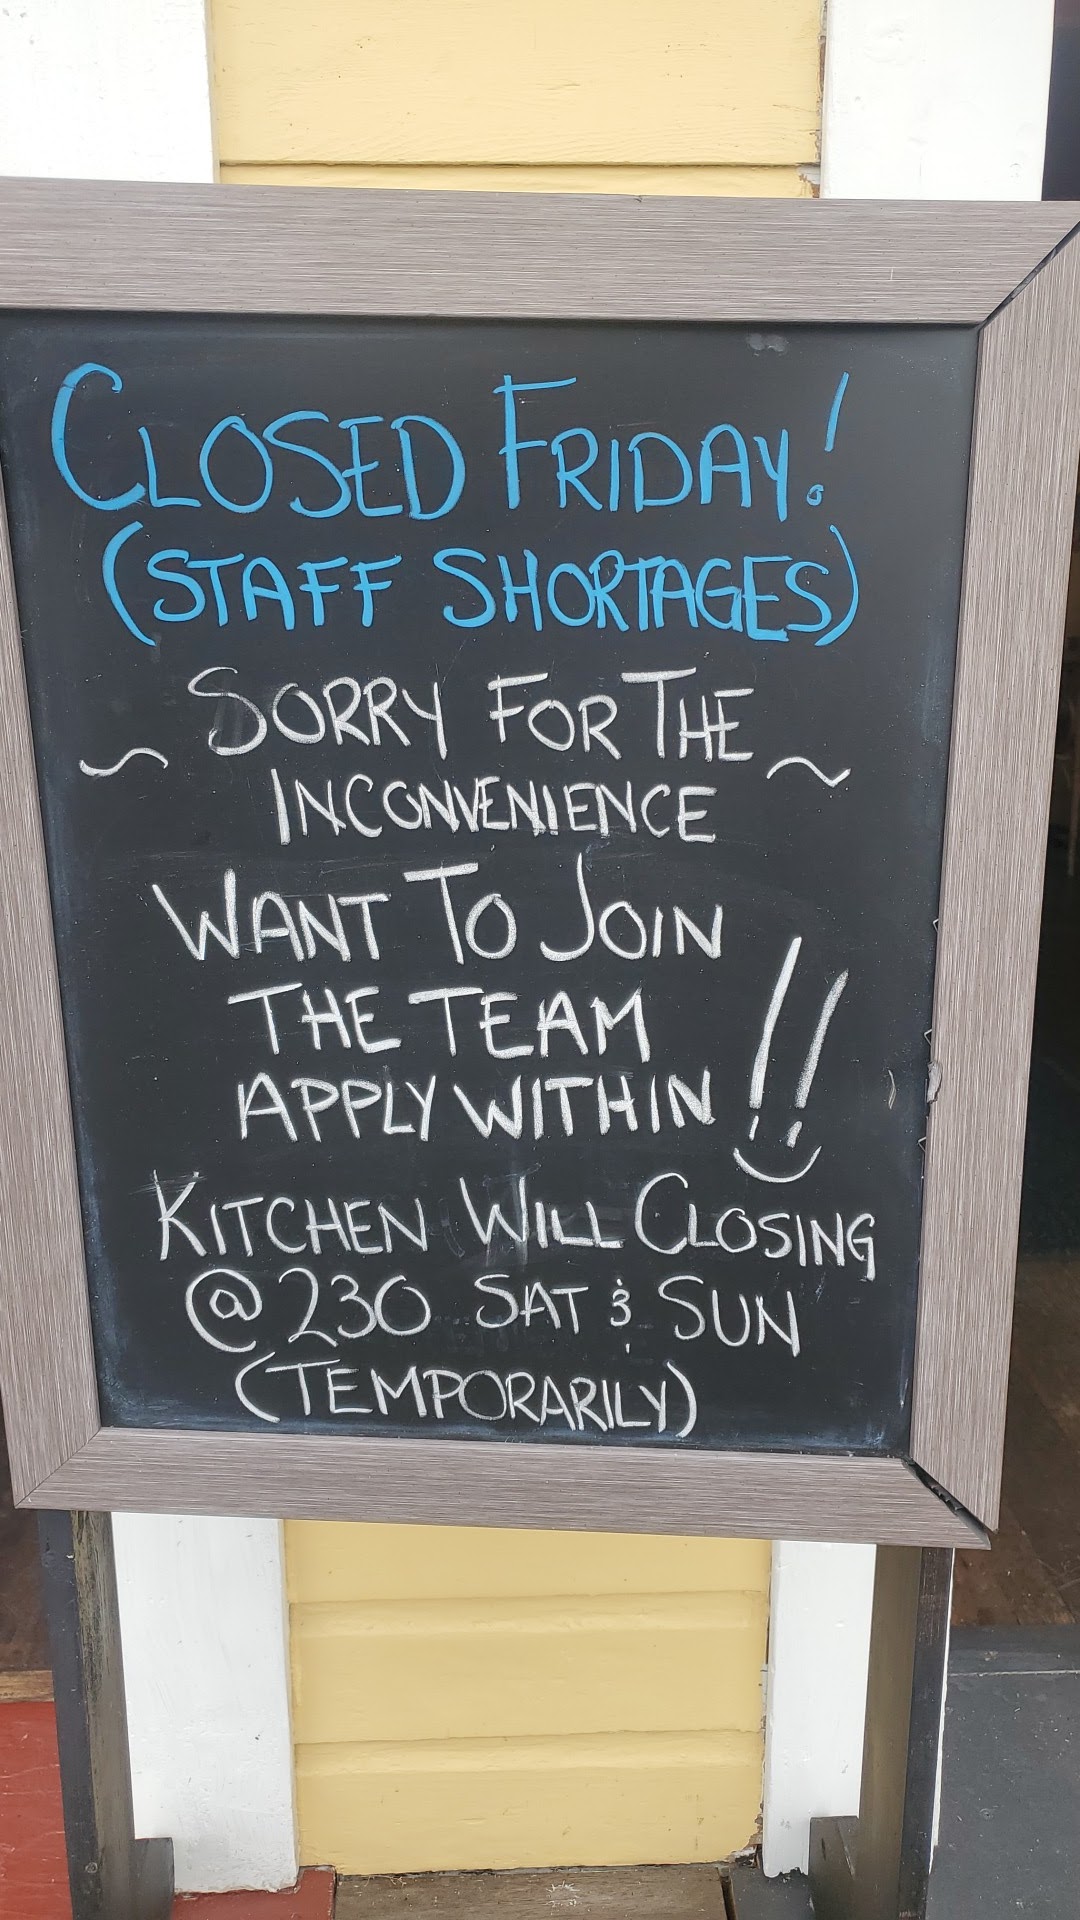 CLOSED FRIDAY!
(STAFF SHORTAGES)
~ SORRY FOR THE ~
INCONVENIENCE
WANT TO JOIN
THE TEAM
APPLY WITHIN !!
KITCHEN WILL CLOSING
@ 230 SAT & SUN
(TEMPORARILY)